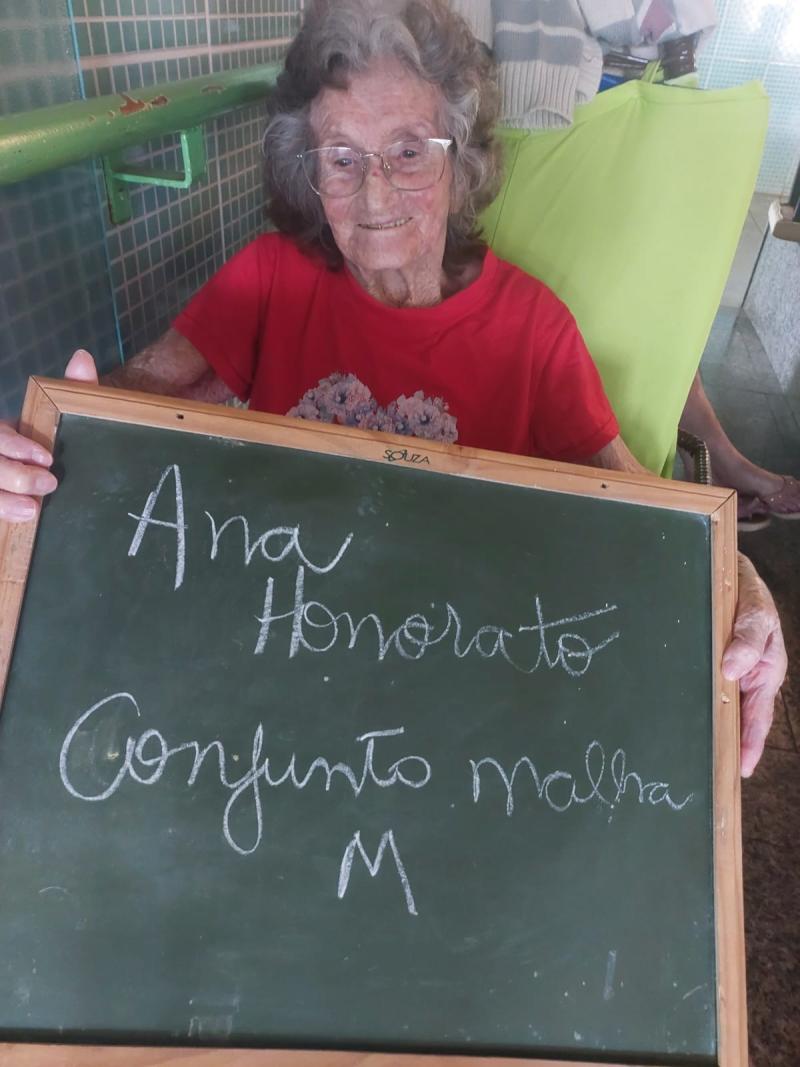 SOUZA
Ana
Honorato
Conjunto malha
M